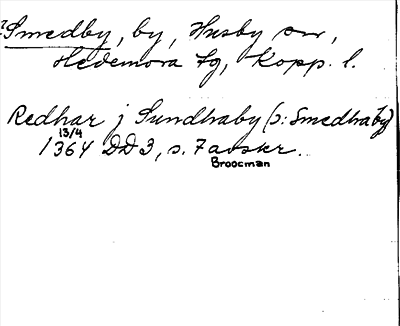 ? Smedby, by, Husby sn,
Hedemora tg, Kopp. l.
Redhar j Sundhaby (ɔ: Smedhaby)
13/4
1364 DD 3, s. 7 avskr.
Broocman